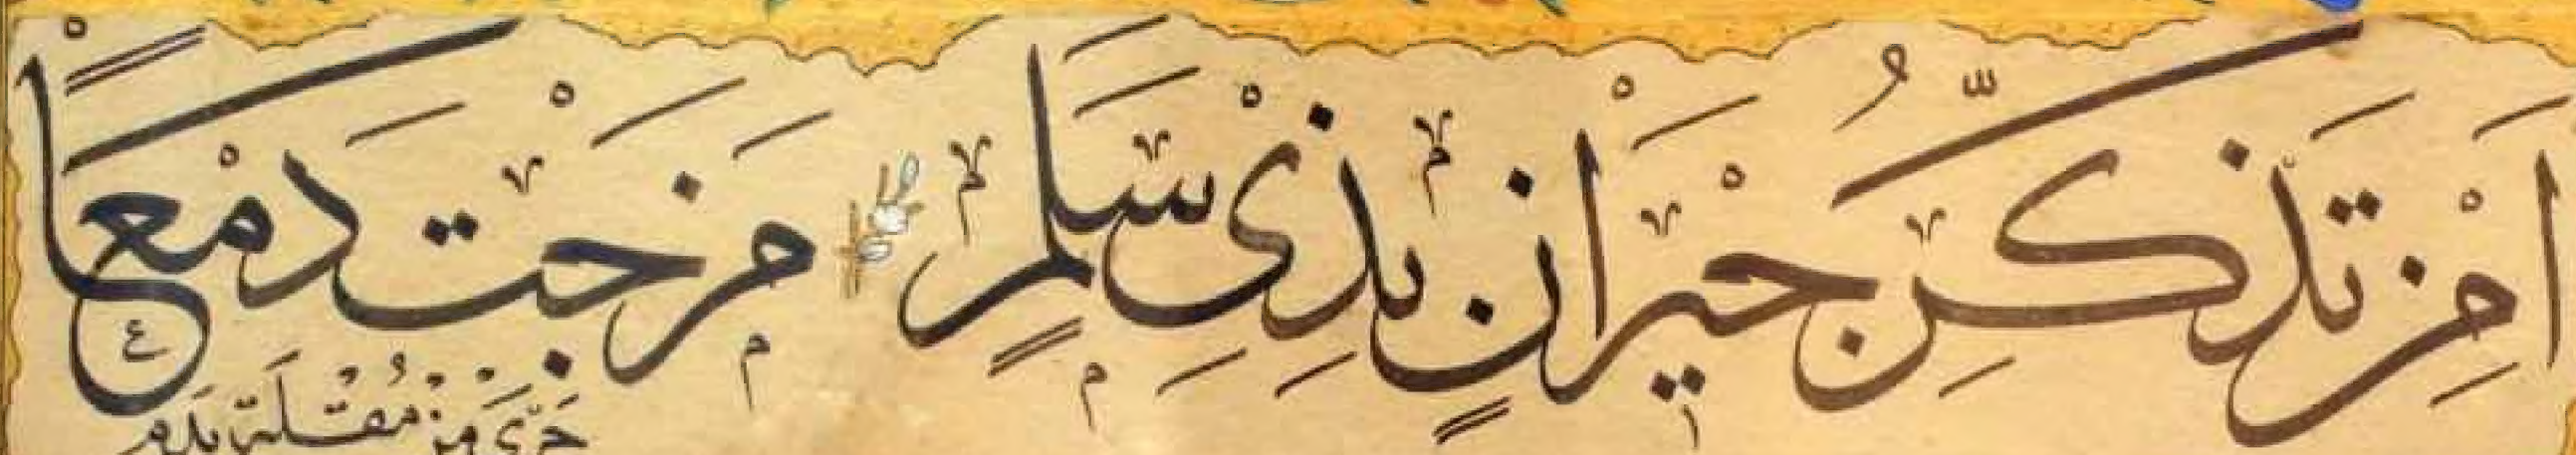 اَمِنْ تَذَكُّرِ جِيْرَانٍ بِذِيْ سَلَمٍ مَزَجْتَ دَمْعًا
جَرَى مِنْ مُقْلَةٍ بِدَمِ